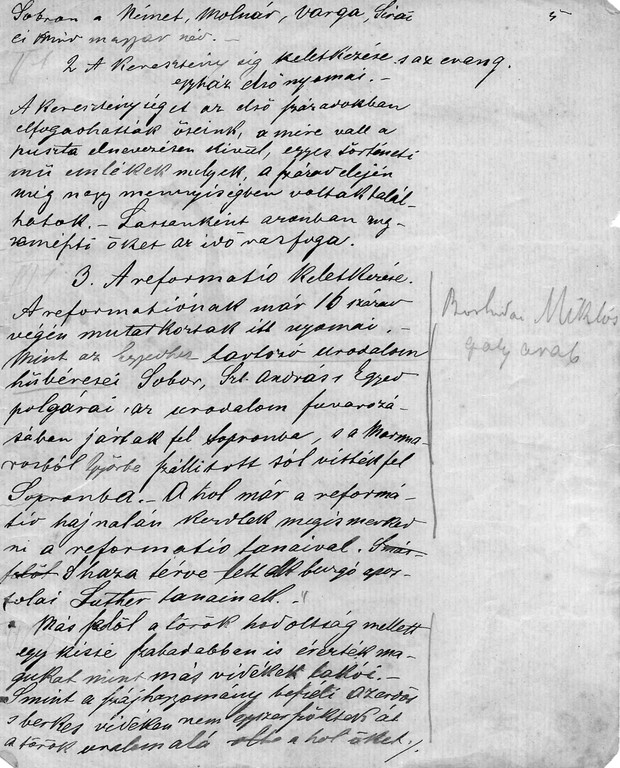 Sobron a Német, Molnár, Varga, Szirá 5
ei mind magyar név. –
2 A kereszténység keletkezése s az evang.
egyház első nyomai. –
A kereszténységet az első századokban
elfogadhatták őseink, a mire vall a
puszta elnevezésen kivül, egyes történeti
mű emlékek melyek, a század elején
még nagy mennyiségben voltak talál-
hatók. – Lassanként azonban meg-
emészti őket az idő vasfoga.
3. A reformatió keletkezése.
A reformatiónak már 16 század
végén mutatkoztak itt nyomai. –
Mint az tartozó uradalom
hűbéresei Sobor, Szt. András s Egyed
polgárai az uradalom fuvarozá-
sában jártak fel Sopronba, s a Marma-
rosból Győrbe szállitott sót vitték fel
Sopronba. – A hol már a reformá-
tió hajnalán kezdtek megismerked
ni a reformatio tanaival.
S haza térve lettek buzgó apos-
tolai Luther tanainak. –
Más felől a török hódoltság mellett
egy kissé szabadabban is érezték ma-
gukat mint más vidékek lakói. –
Smint a befelé
s berkes vidéken nem egyszer szöktek át
a török uralom alá a hol őket
Miklós